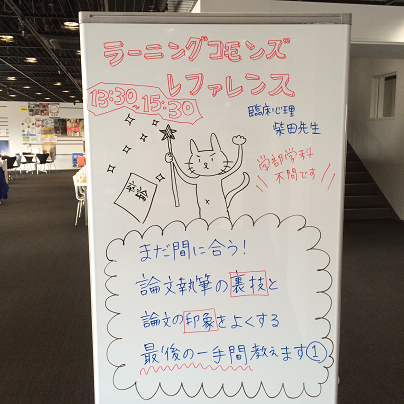 ラーニングコモンズ
レファレンス
13:30～15:30
臨床心理
柴田先生
学部学科
不問です！
卒論
まだ間に合う！
論文執筆の裏技と
論文の印象をよくする
最後の一手間教えます①